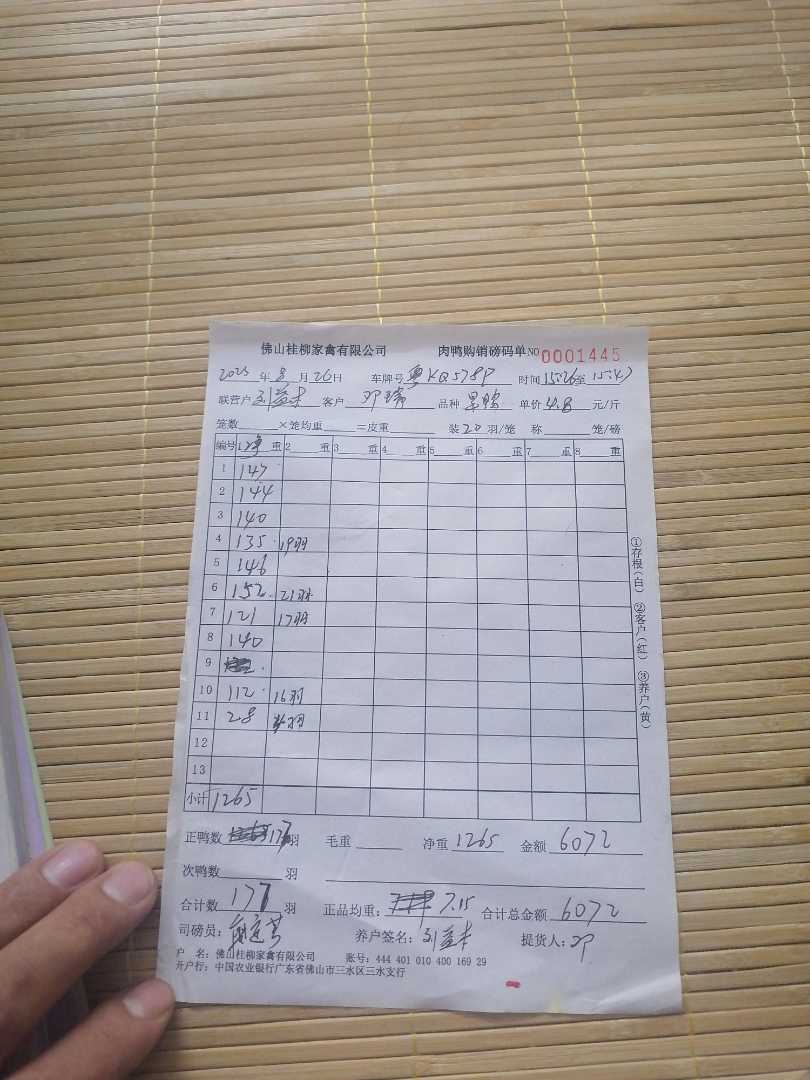 佛山桂柳家禽有限公司 肉鸭购销磅码单 NO 0001445
2023年8月26日 车牌号 粤KQ578P 时间 15:26至15:47
联营户 客户 邓 品种 单价 4.8 元/斤
笼数 ×笼均重 =皮重 装20羽/笼 称 笼/磅
编号 1净重 2 重 3 重 4 重 5 重 6 重 7 重 8 重
1 147
2 144
3 140
4 135 19羽
5 146
6 152 21羽
7 121 17羽
8 140
9
10 112 16羽
11 28 羽
12
13
小计 1265
正鸭数 177羽 毛重 净重 1265 金额 6072
次鸭数 羽
合计数 177 羽 正品均重: 7.15 合计总金额 6072
司磅员: 养户签名: 提货人: 邓
户 名: 佛山桂柳家禽有限公司 账号: 444 401 010 400 169 29
开户行: 中国农业银行广东省佛山市三水区三水支行
①存根(白) ②客户(红) ③养户(黄)